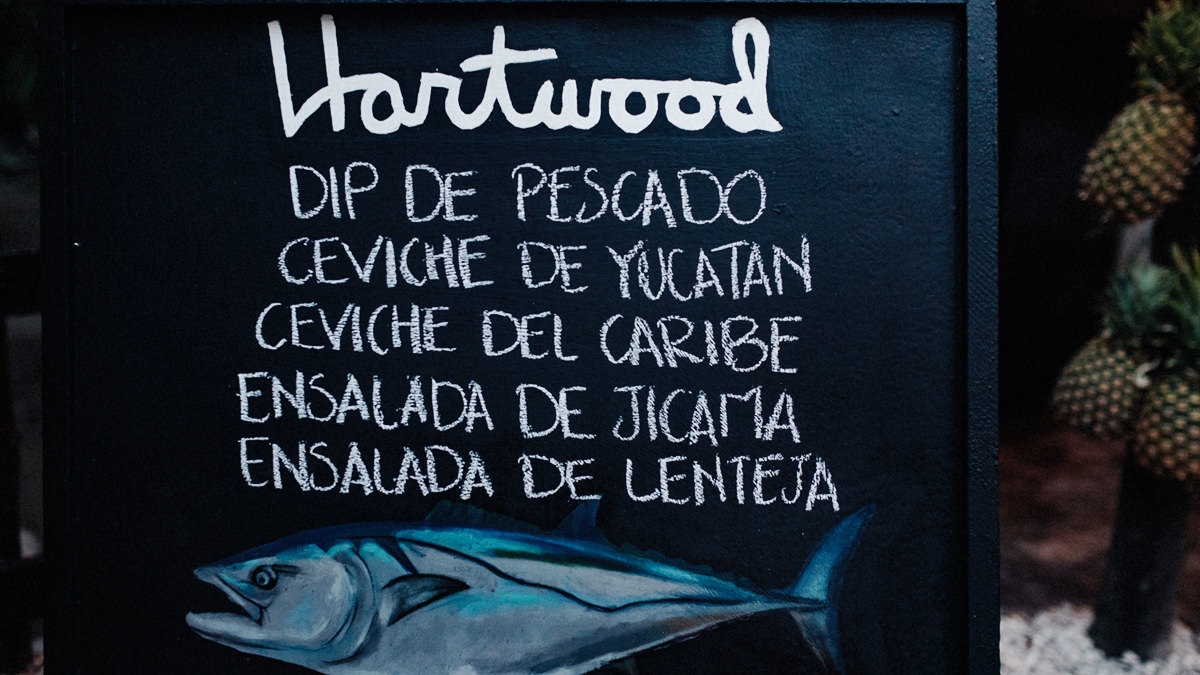 Hartwood
DIP DE PESCADO
CEVICHE DE YUCATAN
CEVICHE DEL CARIBE
ENSALADA DE JICAMA
ENSALADA DE LENTEJA